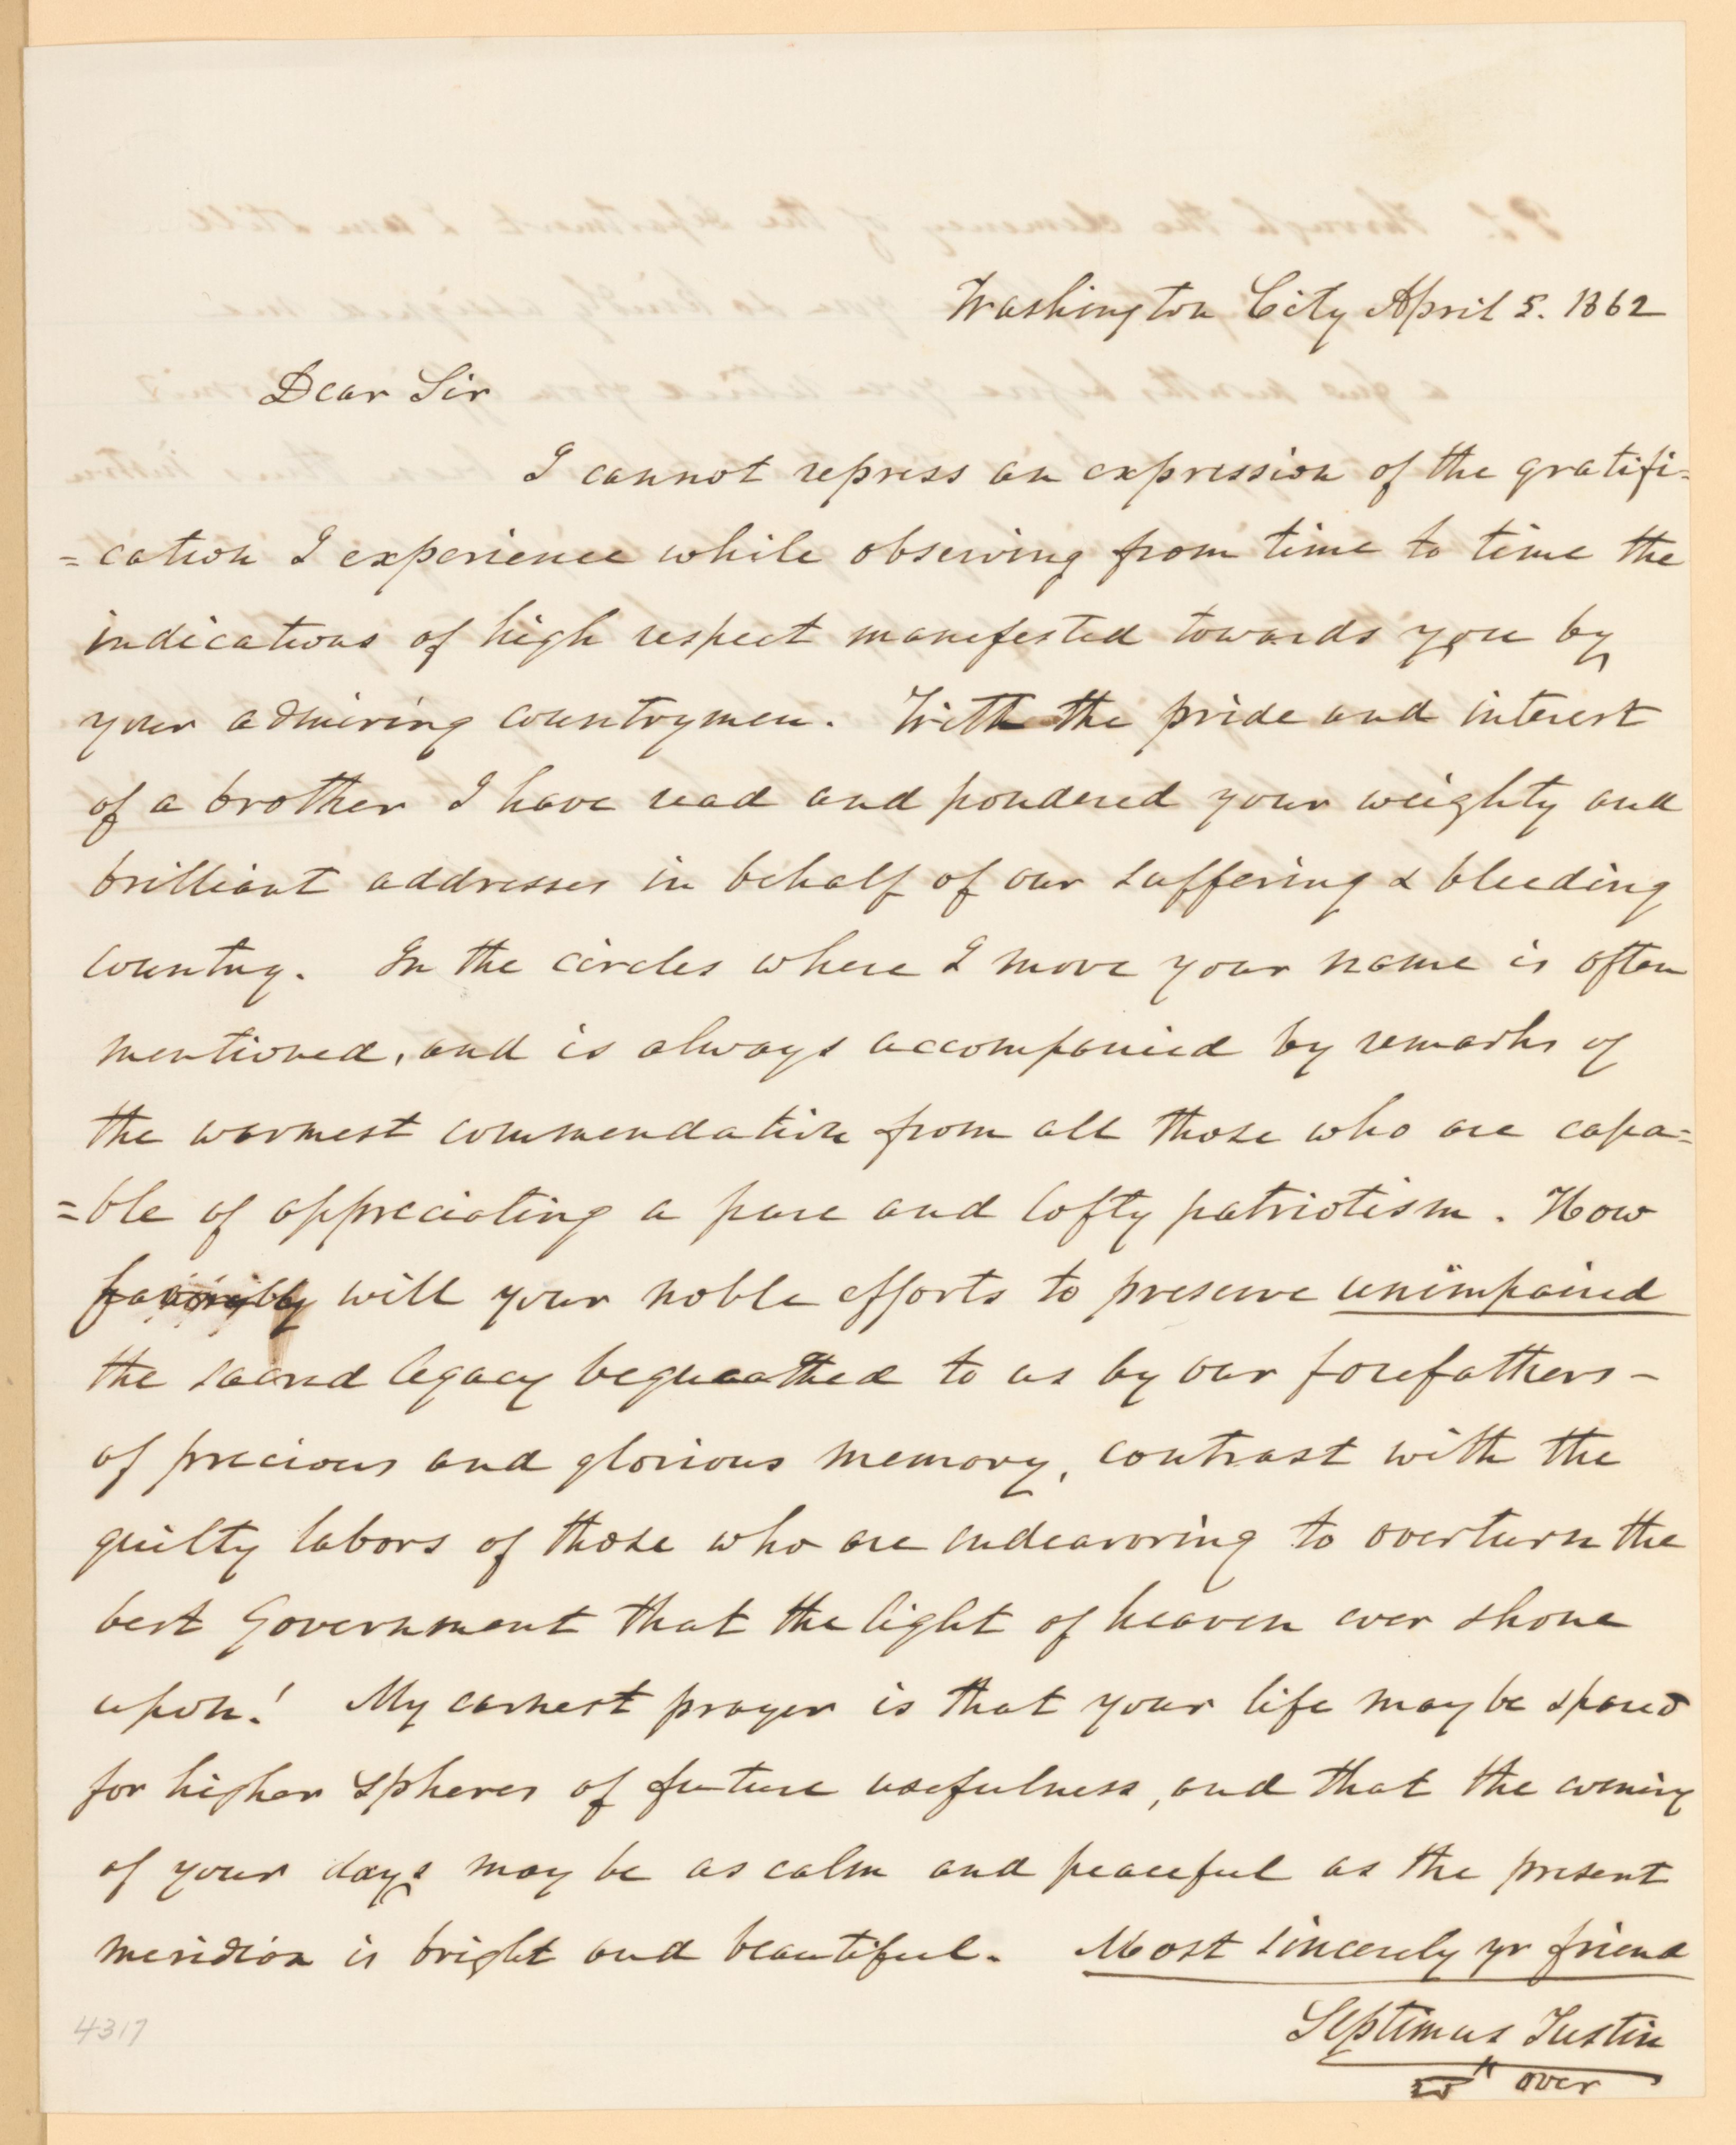 Washington City April 5. 1862
Dear Sir
I cannot repress an expression of the gratifi=
=cation I experience while observing from time to time the
indications of high respect manifested towards you by
your admiring countrymen. With the pride and interest
of a brother I have read and pondered your weighty and
brilliant addresses in behalf of our suffering & bleeding
country. In the circles where I move your name is often
mentioned, and is always accompanied by remarks of
the warmest commendation from all those who are capa=
=ble of appreciating a pure and lofty patriotism. How
favorably will your noble efforts to preserve unimpaired
the sacred legacy bequeathed to us by our forefathers -
of precious and glorious memory, contrast with the
guilty labors of those who are endeavoring to overturn the
best Government that the light of heaven ever shone
upon! My earnest prayer is that your life may be spared
for higher spheres of future usefulness, and that the evening
of your days may be as calm and peaceful as the present
meridian is bright and beautiful. Most sincerely yr friend
Septimus Tustin
over
4317